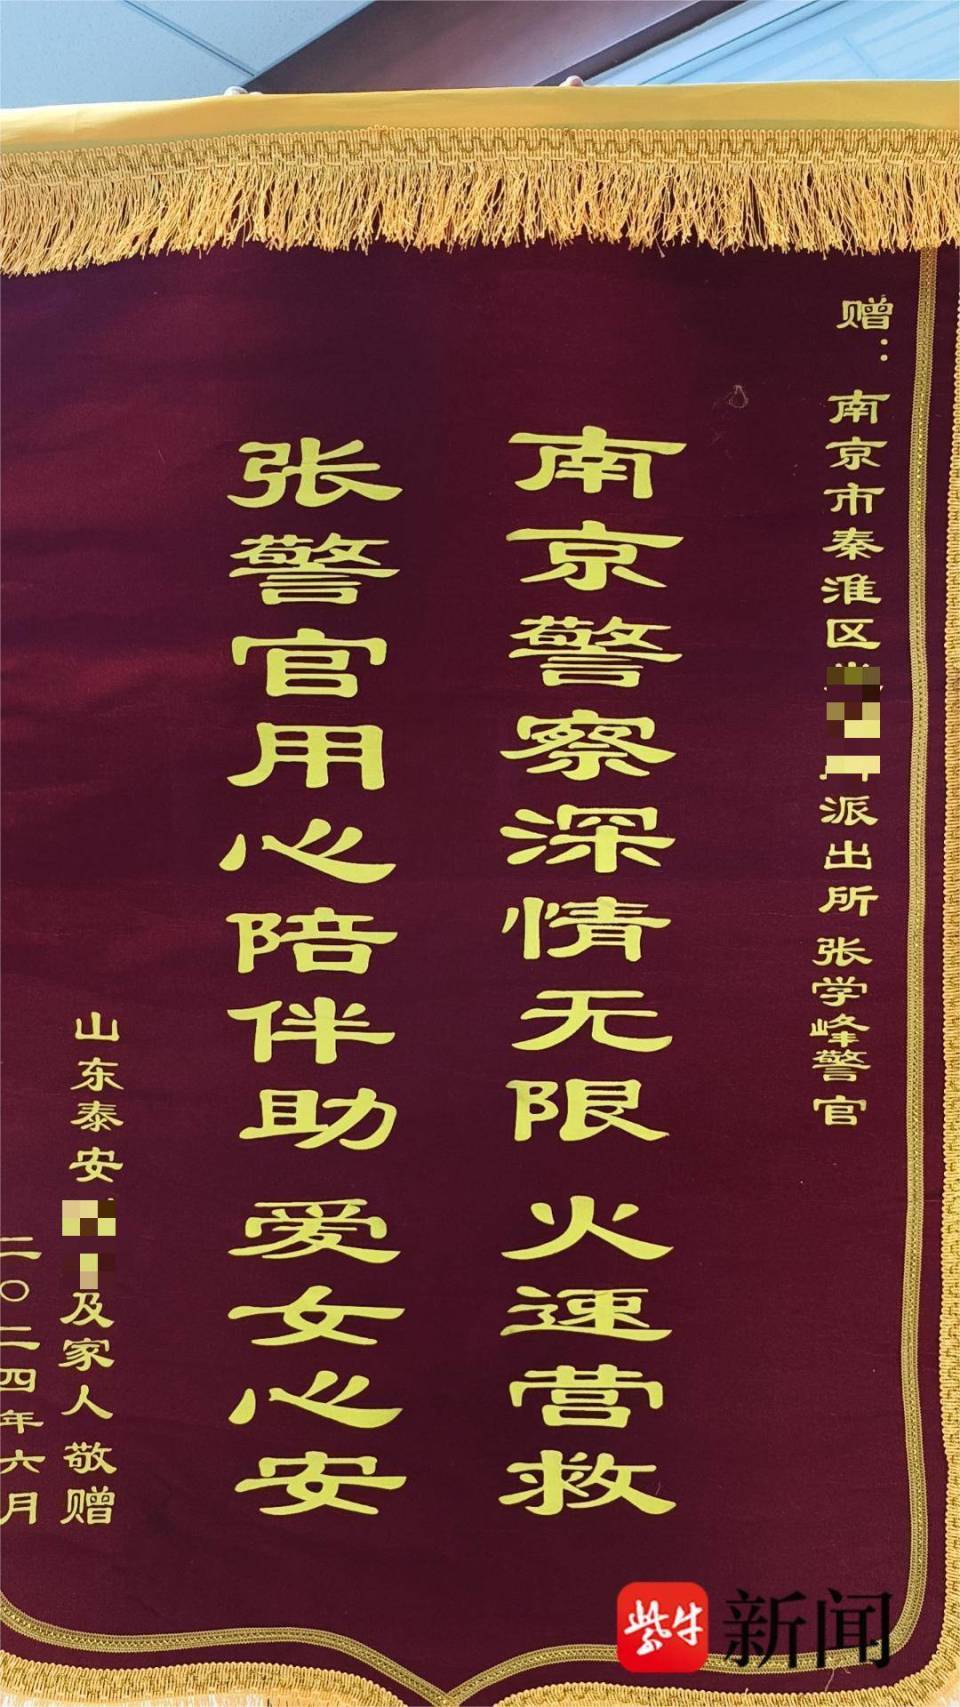 赠：南京市秦淮区派出所 张学峰警官
南京警察深情无限 火速营救
张警官用心陪伴助 爱女心安
山东泰安及家人 敬赠
二〇二四年六月
紫牛新闻